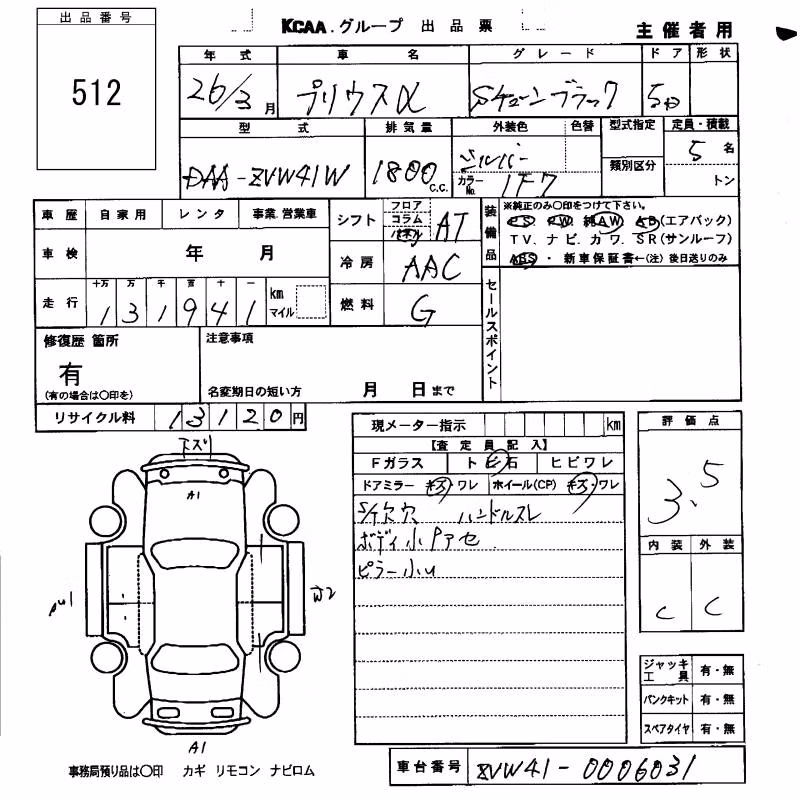 出品番号
512
KCAA.グループ 出品票
主催者用
年式 車名 グレード ドア 形状
26/3月 プリウスα Sチューンブラック 5D
型式 排気量 外装色 色替 型式指定 定員・積載
DAA-ZVW41W 1800 C.C. シルバー 類別区分 5名
カラーNo. 1F7 トン
車歴 自家用 レンタ 事業.営業車
シフト フロア コラム パネル AT
装備品 ※純正のみ〇印をつけて下さい。
PS. PW. 純AW AB(エアバック)
TV. ナビ. カワ. SR(サンルーフ)
ABS ・ 新車保証書←(注) 後日送りのみ
車検 年 月
冷房 AAC
走行 十万 万 千 百 十 一
131941 km マイル
燃料 G
セールスポイント
修復歴 箇所
有
(有の場合は〇印を)
注意事項
名変期日の短い方 月 日まで
リサイクル料 13120円
現メーター指示 km
【査定員記入】
Fガラス トビ石 ヒビワレ
ドアミラー キズ・ワレ ホイール(CP) キズ・ワレ
ハンドルスレ
ボディ小Pアセ
ピラー小U
評価点
3.5
内装 外装
C C
下ズリ
A1
A1
ジャッキ工具 有・無
パンクキット 有・無
スペアタイヤ 有・無
事務局預り品は〇印 カギ リモコン ナビロム
車台番号 ZVW41-0006031